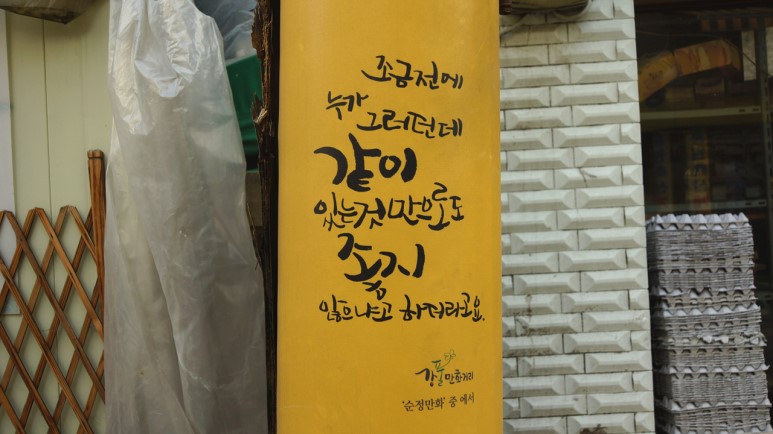 조금전에
누가
그러던데
같이
있는것만으로도
좋지
않으냐고 하더라고요.
강풀만화거리
'순정만화' 중에서